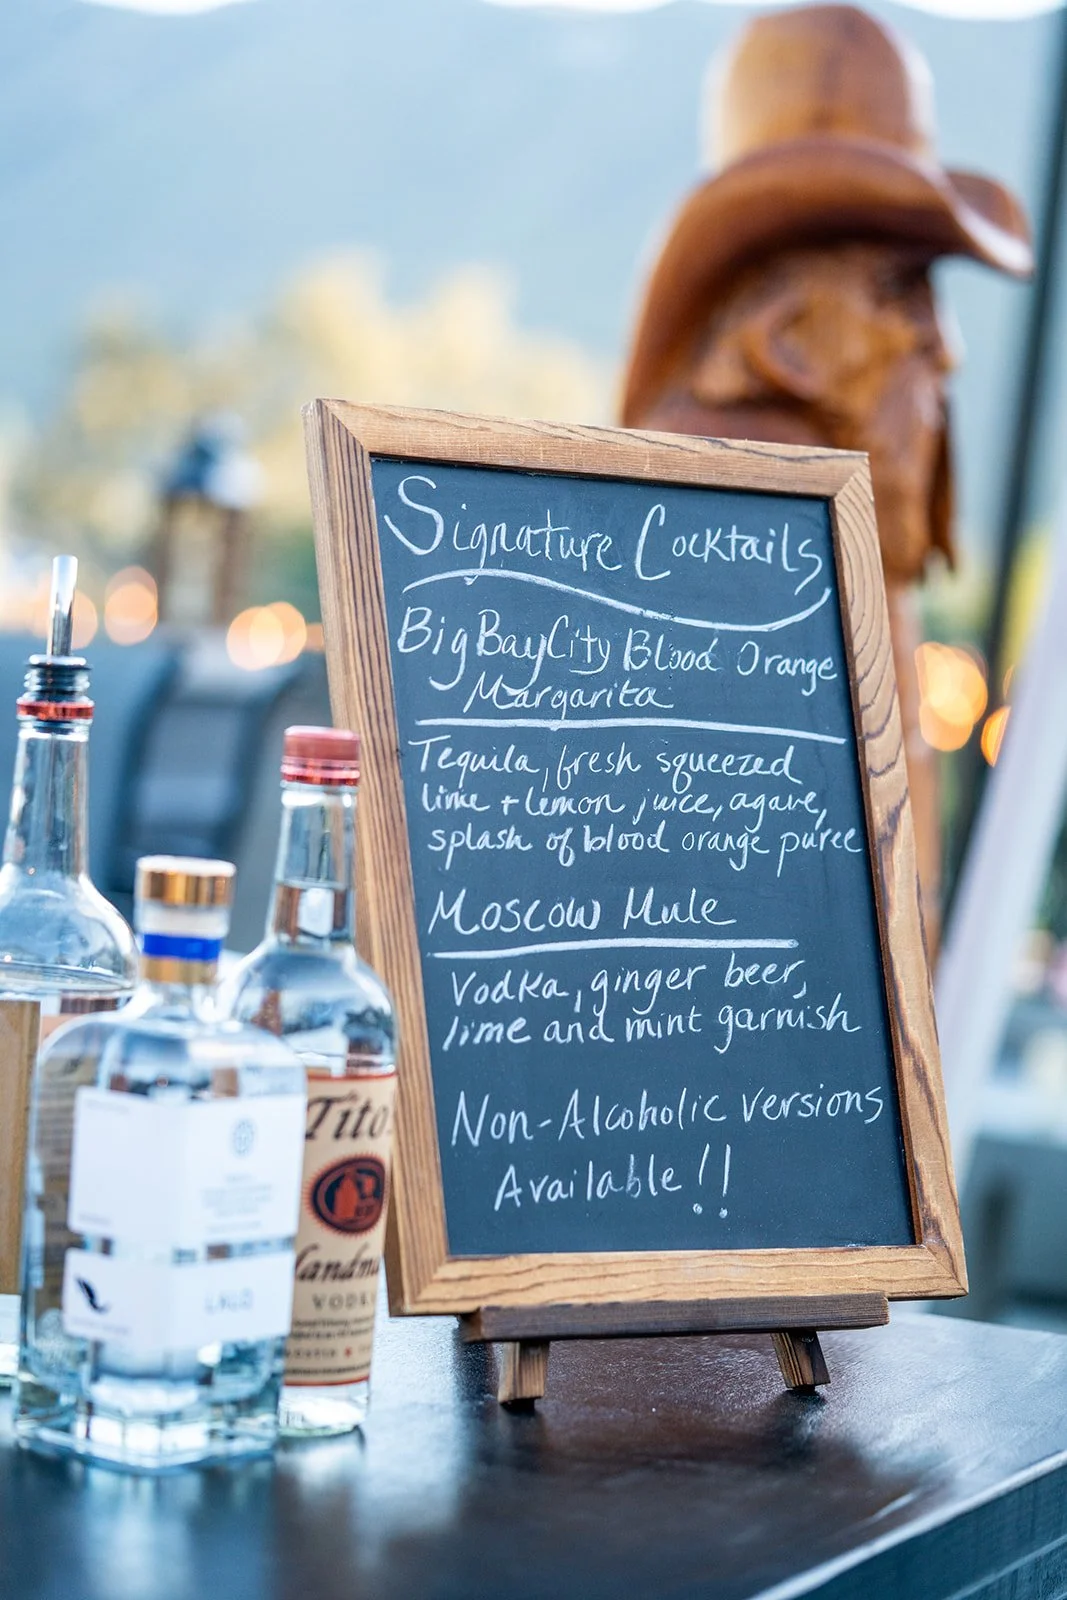 Signature Cocktails
Big Bay City Blood Orange
Margarita
Tequila, fresh squeezed
lime + lemon juice, agave,
splash of blood orange puree
Moscow Mule
Vodka, ginger beer,
lime and mint garnish
Non-Alcoholic versions
Available!!
Tito
andm
VODK
LALO